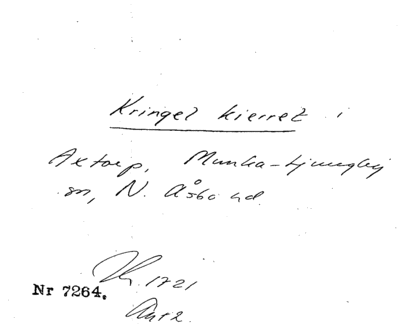 Kringel kierret i
Axtorp, Munka-Ljungby
sn, N. Åsbo hd.
1721
Nr 7264.